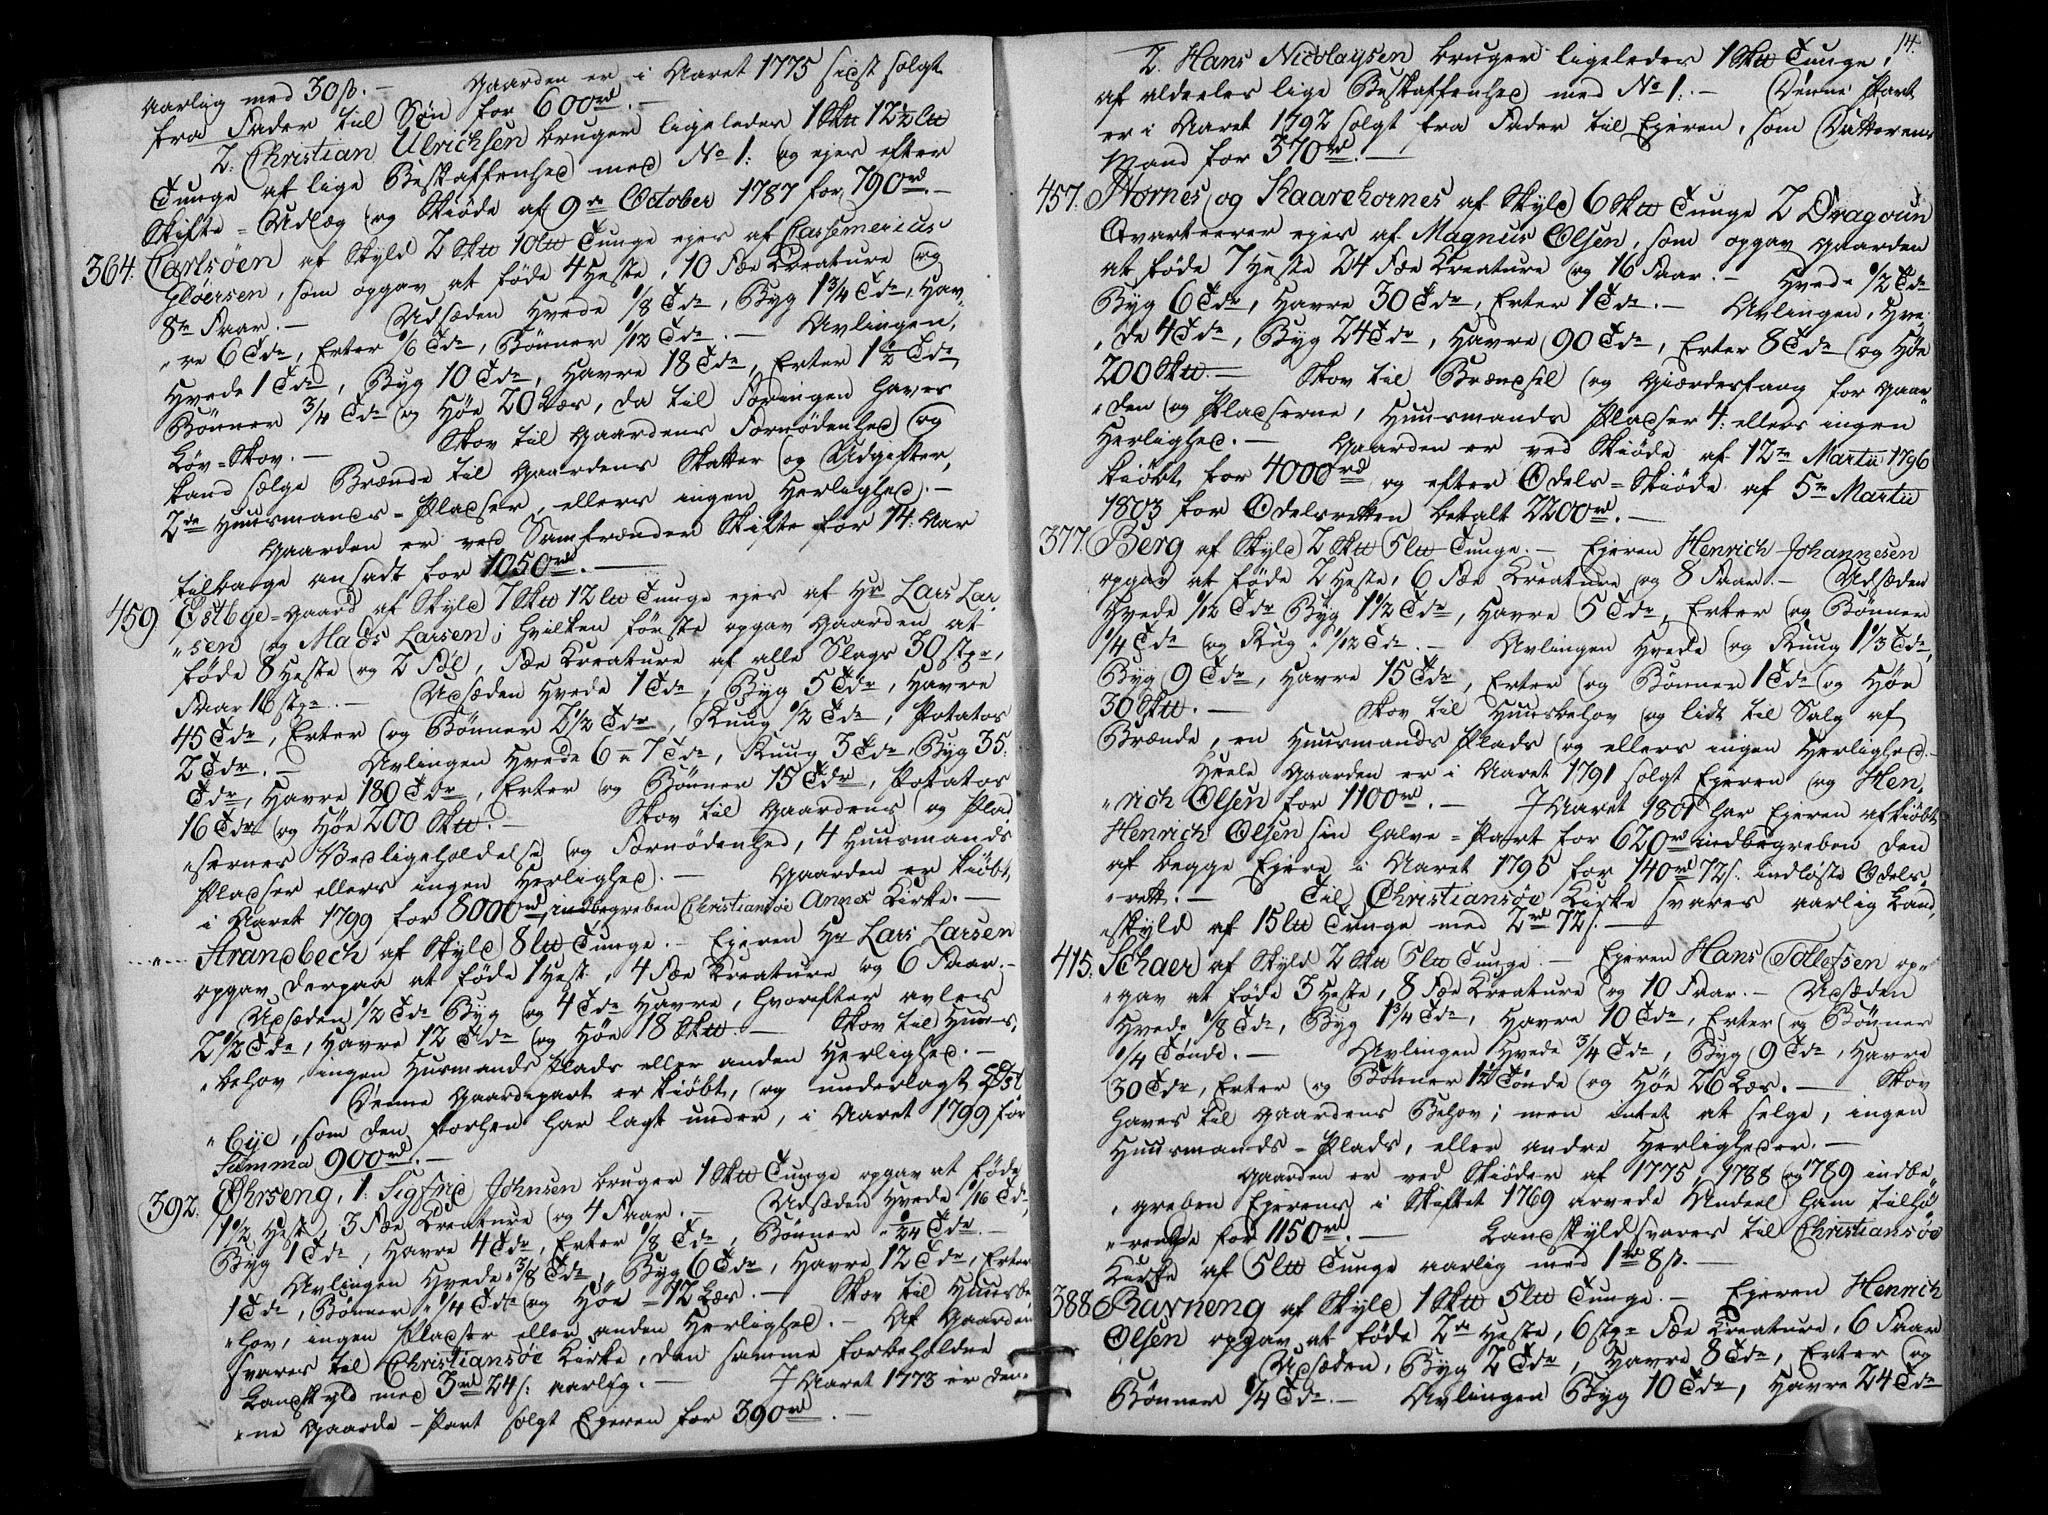 aarlig med 30 ß. — Gaarden er i Aaret 1775 sidst solgt
fra Fader til Søn for 600 rd. —
2. Christian Ulrichsen bruger ligeledes 1 Sk℔ 12½ l℔
Tunge af lige Beskaffenhed med No 1: og ejes efter
Skifte-Udlæg og Skiøde af 9de October 1787 for 790 rd. —
364. Carlsøen af Skyld 2 Sk℔ 10 l℔ Tunge ejes af Cassemerius
Gløersen, som opgav at føde 4 Heste, 10 Fæe Kreature og
8te Faar. — Udsæden Hvede 1/8 Tde, Byg 1¾ Tde, Hav„
„re 6 Tdr, Erter 1/6 Tde, Bønner 1/12 Tde. — Avlingen,
Hvede 1 Tde, Byg 10 Tdr, Havre 18 Tdr, Erter 1½ Tde
Bønner ¾ Tde og Høe 20 Læs, da til Foringen haves
Løv-Skov. — Skov til Gaardens Fornødenhed og
kand sælge Brænde til Gaardens Skatter og Udgifter,
2de Huusmands-Pladser, ellers ingen Herlighed. —
Gaarden er ved Samfrænder Skifte for 14 Aar
tilbage ansadt for 1050 rd. —
459. Østbye-Gaard af Skyld 7 Sk℔ 12 l℔ Tunge ejes af Hr Lars Lar„
„sen og Mads Larsen; hvilken første opgav Gaarden at
føde 8 Heste og 2 Føl, Fæe Kreature af alle Slags 30 stkr,
Faar 16 stkr. — Udsæden Hvede 1 Tde, Byg 5 Tdr, Havre
45 Tdr, Erter og Bønner 2½ Tde, Ruug ½ Tde, Potatos
2 Tdr. — Avlingen Hvede 6 a 7 Tdr, Ruug 3 Tdr, Byg 35
Tdr, Havre 180 Tdr, Erter og Bønner 15 Tdr, Potatos
16 Tdr og Høe 200 Sk℔. — Skov til Gaardens og Plad„
„sernes Vedligeholdelse og Fornødenhed, 4 Huusmands
Pladser ellers ingen Herlighed. — Gaarden er kiøbt
i Aaret 1799 for 8000 rd indbegreben Christiansøe Annex Kirke. —
„ Strandbech af Skyld 8 l℔ Tunge. — Ejeren Hr Lars Larsen
opgav derpaa at føde 1 Hest, 4 Fæe Kreature og 6 Faar. —
Udsæden ½ Tde Byg og 4 Tdr Havre, hvorefter avles
2½ Tde, Havre 12 Tdr og Høe 18 Sk℔ — Skov til Huus„
„behov, ingen Husmands Plads eller anden Herlighed. —
Denne Gaardspart er kiøbt, og underlagt Øst„
„bye, som den forhen har lagt under, i Aaret 1799 for
Summa 900 rd. —
392. Øhrseng, 1: Sigfrid Johnsen bruger 1 Sk℔ Tunge opgav at føde
1½ Hest, 3 Fæe Kreature og 4 Faar. — Udsæden Hvede 1/16 Tde,
Byg 1 Tde, Havre 4 Tdr, Erter 1/8 Tde, Bønner 1/24 Tde. —
Avlingen Hvede 3/8 Tde, Byg 6 Tdr, Havre 12 Tdr, Erter
1 Tde, Bønner ¼ Tde og Høe 12 Læs. — Skov til Huusbe„
„hov, ingen Pladser eller anden Herlighed. — Af Gaarden
svares til Christiansøe Kirke, den samme forbeholdne
Landskyld med 3 rd 24 s: aarlig. — I Aaret 1773 er den„
„ne Gaards-Part solgt Ejeren for 390 rd. —
14.
2. Hans Nicolaysen bruger ligeledes 1 Sk℔ Tunge,
af aldeeles lige Beskaffenhed med No 1. — Denne Part
er i Aaret 1792 solgt fra Fader til Ejeren, som Datterens
Mand for 370 rd. —
457. Hornes og Kaarehornes af Skyld 6 Sk℔ Tunge 2 Dragoun
Qvarteerer ejes af Magnus Olsen, som opgav Gaarden
at føde 7 Heste 24 Fæe Kreature og 16 Faar. — Hvede ½ Tde
Byg 6 Tdr, Havre 30 Tdr, Erter 1 Tde. — Avlingen, Hve„
„de 4 Tdr, Byg 24 Tdr, Havre 90 Tdr, Erter 8 Tdr og Høe
200 Sk℔. — Skov til Brændsel og Giærdesfang for Gaar„
„den og Pladserne, Huusmands Pladser 4: ellers ingen
Herlighed. — Gaarden er ved Skiøde af 12te Martii 1796
kiøbt for 4000 rd og efter Odels-Skiøde af 5te Martii
1803 for Odelsretten betalt 2200 rd. —
377. Berg af Skyld 2 Sk℔ 5 l℔ Tunge. — Ejeren Henrich Johannesen
opgav at føde 2 Heste, 6 Fæe Kreature og 8 Faar. — Udsæden
Hvede 1/12 Tde Byg 1½ Tde, Havre 5 Tdr, Erter og Bønner
¼ Tde og Rug 1/12 Tde. — Avlingen Hvede og Ruug 1⅓ Tde,
Byg 9 Tdr, Havre 15 Tdr, Erter og Bønner 1 Tde og Høe
30 Sk℔. — Skov til Huusbehov og lidt til Salg af
Brænde, en Huusmands Plads og ellers ingen Herlighed. —
Heele Gaarden er i Aaret 1791 solgt Ejeren og Hen„
„rich Olsen for 1100 rd. — I Aaret 1801 har Ejeren afkiøbt
Henrich Olsen sin halve-Part for 620 rd indbegreben den
af begge Ejere i Aaret 1795 for 140 rd 72 s. indløste Odels„
„rett. — Til Christiansøe Kirke svares aarlig Land„
„skyld af 15 l℔ Tunge med 2 rd 72 s. —
415. Schaer af Skyld 2 Sk℔ 5 l℔ Tunge. — Ejeren Hans Tollefsen op„
„gav at føde 3 Heste, 8 Fæe Kreature og 10 Faar. — Udsæden
Hvede 1/8 Tde, Byg 1¾ Tde, Havre 10 Tdr, Erter og Bønner
¼ Tønde. — Avlingen Hvede ¾ Tde, Byg 9 Tdr, Havre
30 Tdr, Erter og Bønner 1½ Tønde og Høe 26 Læs. — Skov
haves til Gaardens Behov; men intet at selge, ingen
Huusmands-Plads, eller andre Herligheder. —
Gaarden er ved Skiøder af 1775, 1788 og 1789 indbe„
„greben Ejerens i Skiftet 1769 arvede Andeel ham tilhø„
„rende for 1150 rd. — Landskyld svares til Christiansøe
Kirke af 5 l℔ Tunge aarlig med 1 rd 8 ß. —
388. Ravneng af Skyld 1 Sk℔ 5 l℔ Tunge. — Ejeren Henrich
Olsen opgav at føde 2de Heste, 6 stkr Fæe Kreature, 6 Faar
Udsæden, Byg 2 Tdr, Havre 8 Tdr, Erter og
Bønner ¼ Tde. — Avlingen Byg 10 Tdr, Havre 24 Tdr